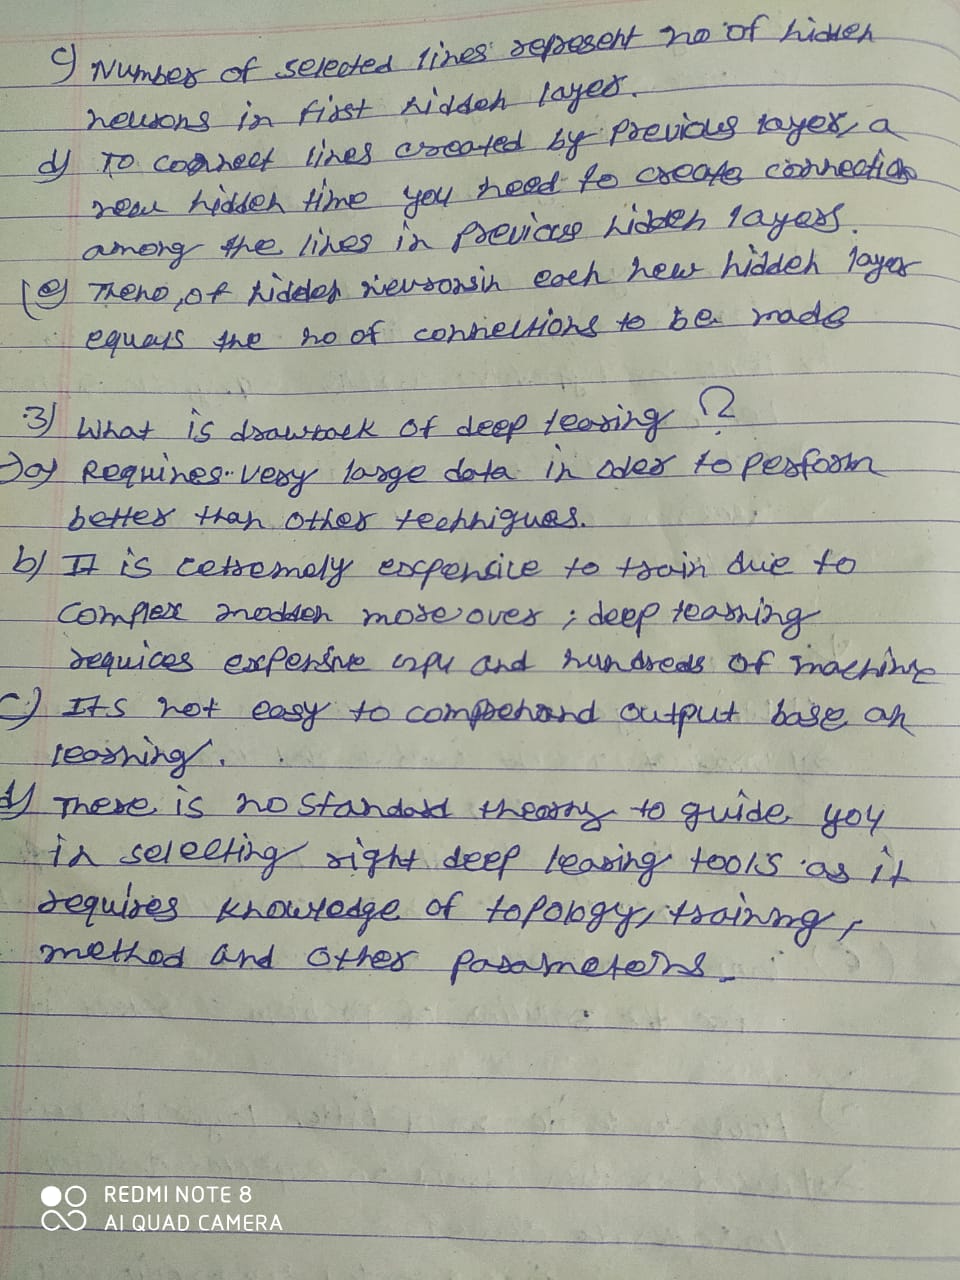 c) Number of selected lines represent no of hidden
neurons in first hidden layer.
d) To connect lines created by previous layer, a
new hidden time you need to create connection
among the lines in previous hidden layers.
(e) The no, of hidden neurons in each new hidden layer
equals the no of connections to be made
3) What is drawback of deep learing ?
a) Requires very large data in oder to perform
better than other techniques.
b) It is cetremely expensive to train due to
complex moddeh more over ; deep learning
requices expensive gpu and hundreds of machine
c) Its not easy to comprehand output base on
learning.
d) There is no standard theorry to guide you
in selecting right deep learing tools as it
requires knowledge of topology, training,
method and other parameters.
REDMI NOTE 8
AI QUAD CAMERA